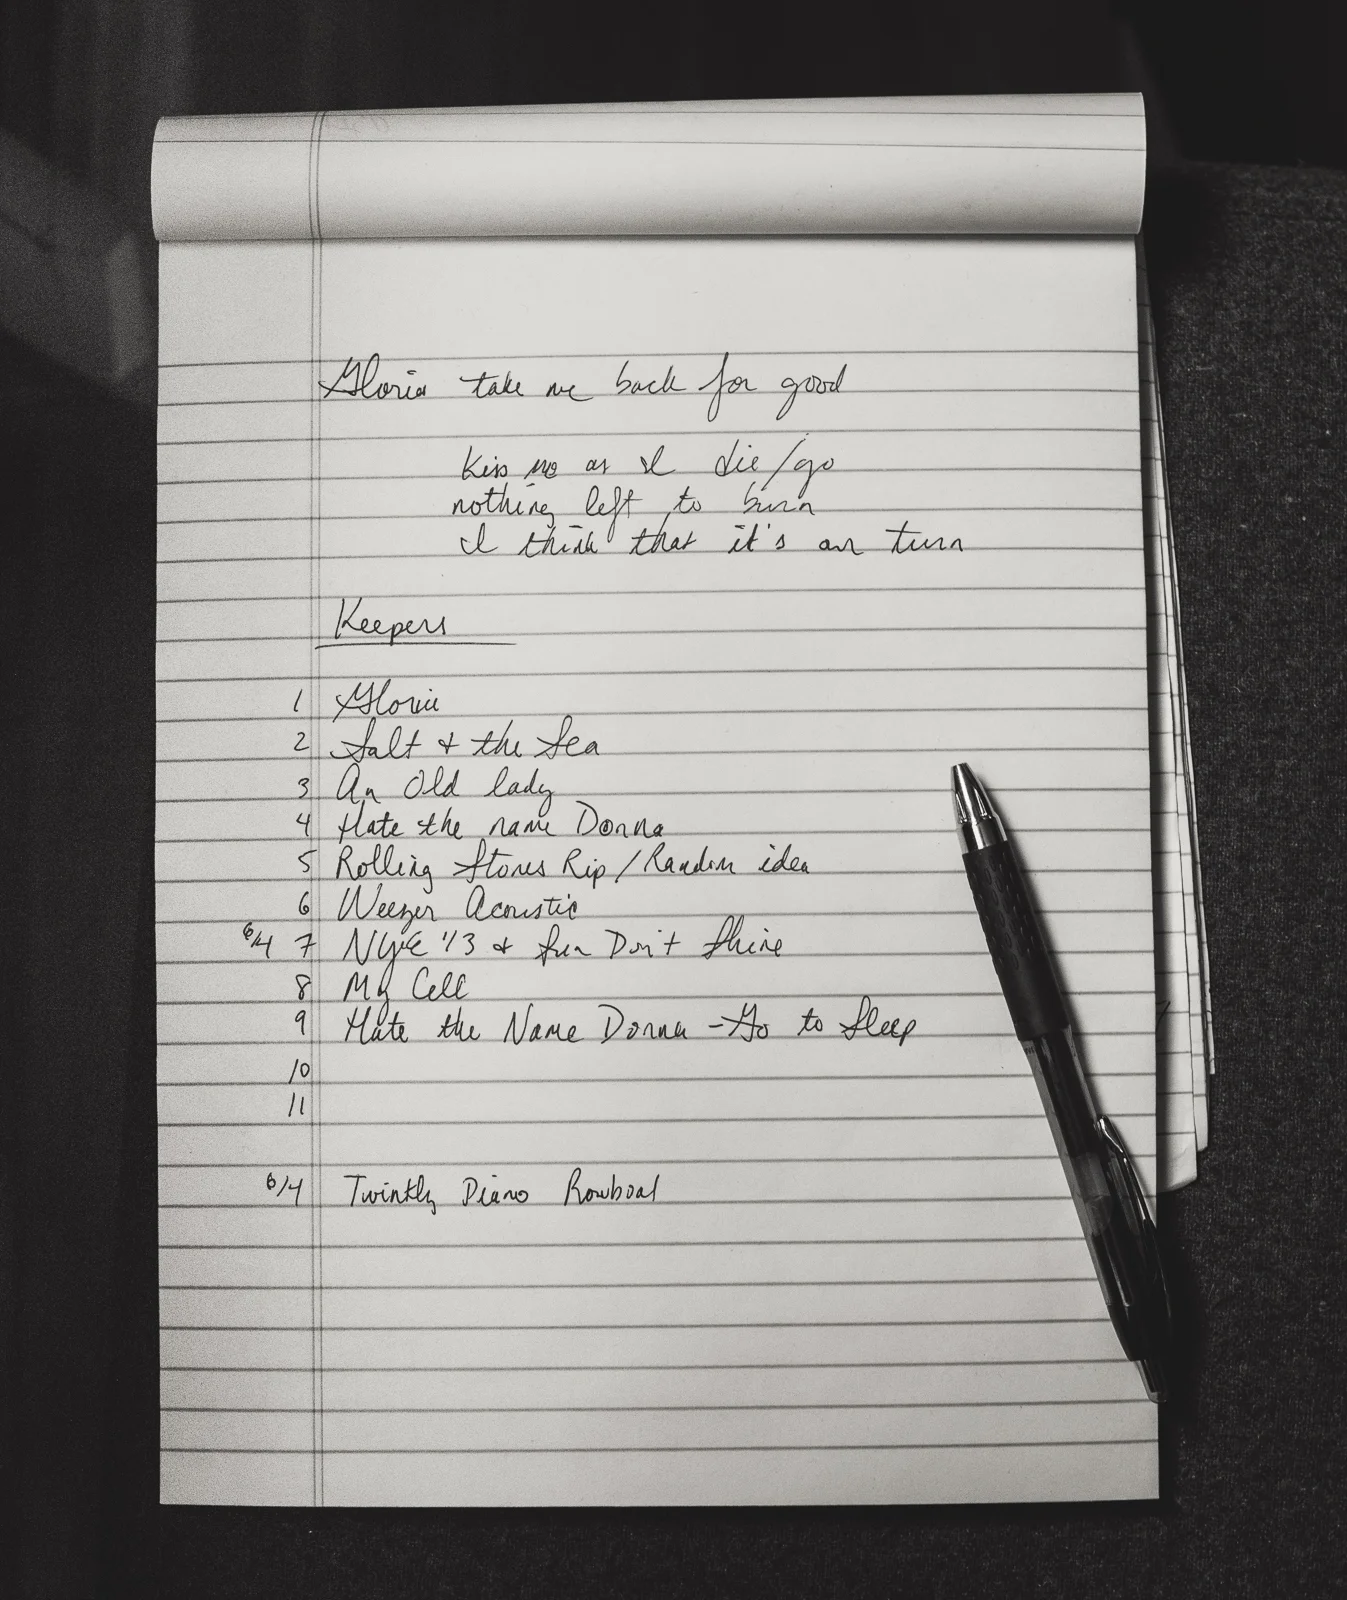 Gloria take me back for good
Kiss me as I die/go
nothing left to burn
I think that it's our turn
Keepers
1 Gloria
2 Salt & the Sea
3 An Old lady
4 Hate the name Donna
5 Rolling Stones Rip/Random idea
6 Weezer Acoustic
6/4 7 NYE '13 & Sun Don't Shine
8 My Cell
9 Hate the Name Donna - Go to Sleep
10
11
6/4 Twinkly Piano Rowboat